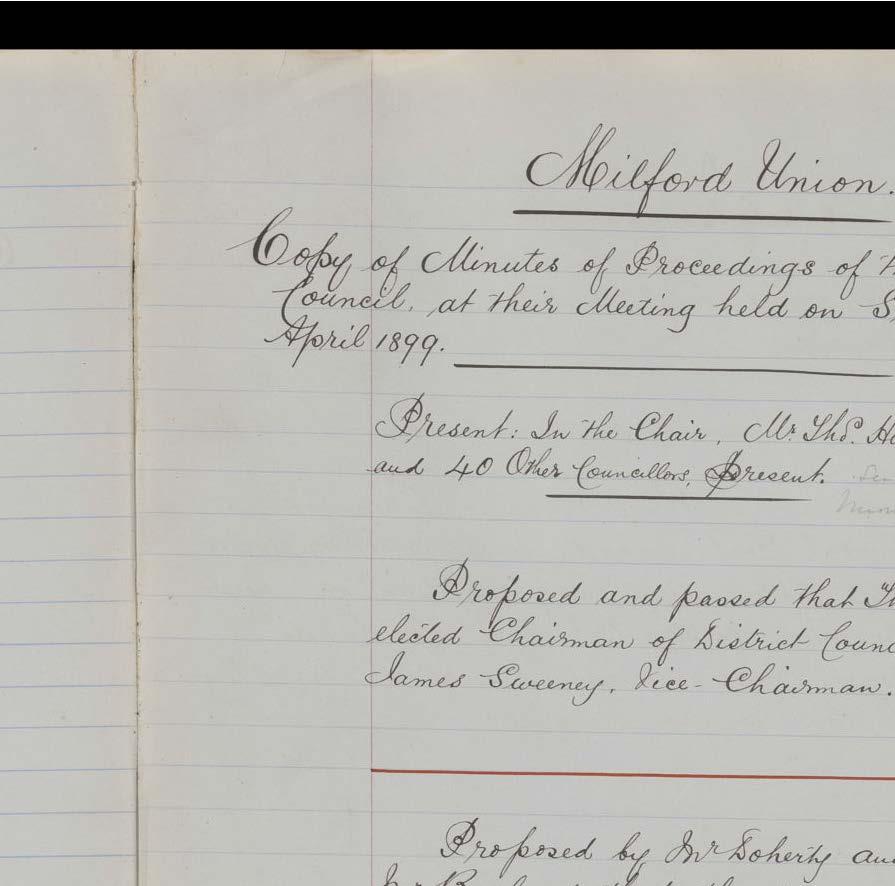 Milford Union.
Copy of Minutes of Proceedings of
Council, at their Meeting held on
April 1899.
Present: In the Chair, Mr. Thos.
and 40 Other Councillors, Present.
Proposed and passed that
elected Chairman of District
James Sweeney, Vice-Chairman.
Proposed by Mr Doherty